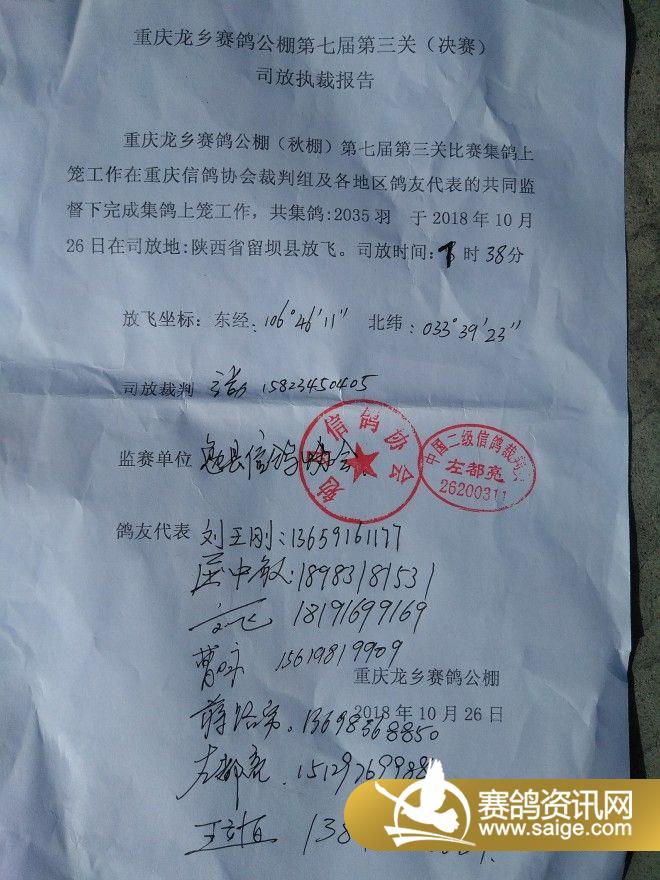 重庆龙乡赛鸽公棚第七届第三关（决赛）
司放执裁报告
重庆龙乡赛鸽公棚（秋棚）第七届第三关比赛集鸽上
笼工作在重庆信鸽协会裁判组及各地区鸽友代表的共同监
督下完成集鸽上笼工作，共集鸽:2035 羽 于 2018 年 10 月
26 日在司放地:陕西省留坝县放飞。司放时间: 时 38分
放飞坐标：东经:106°46′11″ 北纬:033°39′23″
司放裁判 15823450405
监赛单位 勉县信鸽协会
勉县信鸽协会
中国二级信鸽裁判员
左都亮
26200311
鸽友代表 刘王刚:13659161177
屈中敏:18983181531
18191699169
曹 15619819909
重庆龙乡赛鸽公棚
2018 年 10 月 26 日
蒋 13698568850
左都亮 1512976998
王 138
赛鸽资讯网
www.saige.com